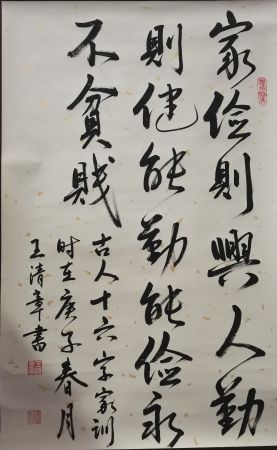 家俭則興人勤
則健能勤能俭永
不貧賤
古人十六字家训
时在庚子春月
王清章書